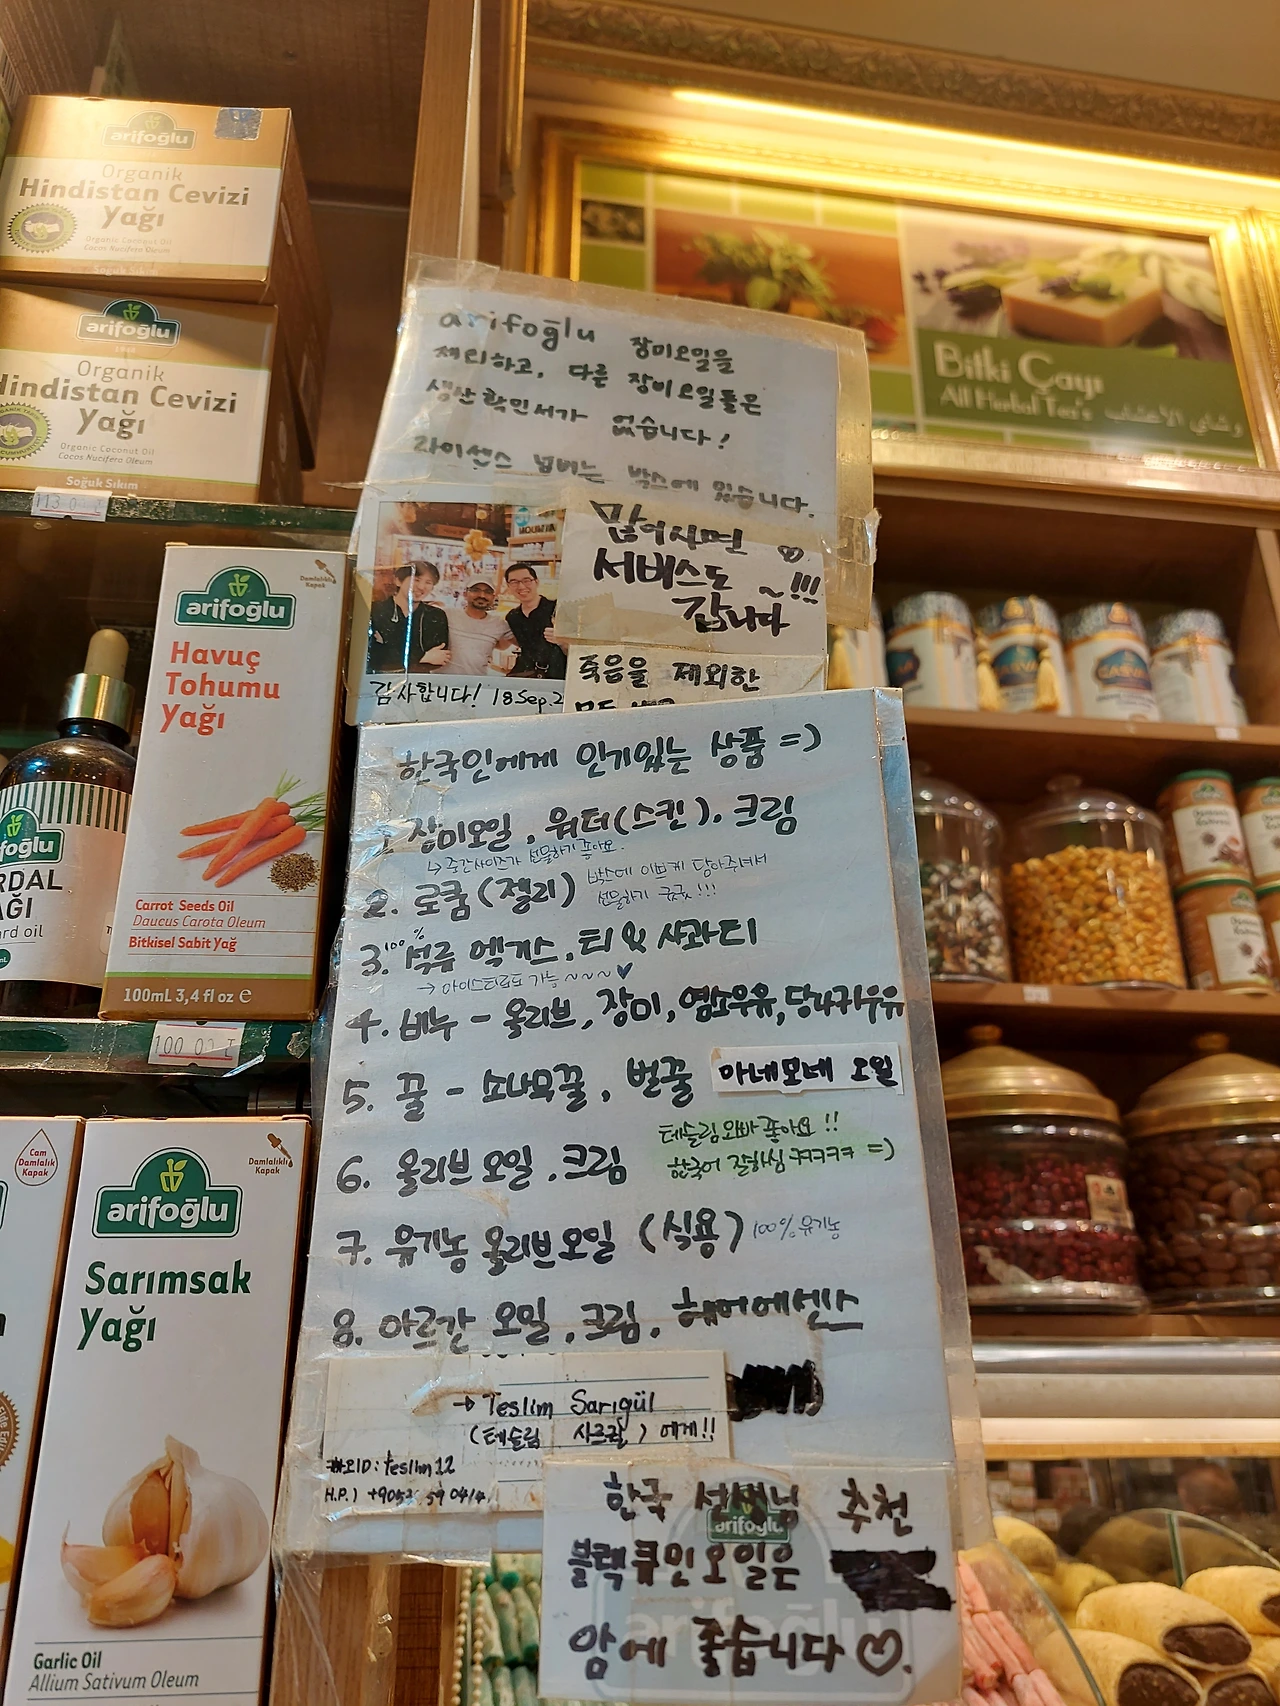 arifoğlu
Organik
Hindistan Cevizi
Yağı
Organic Coconut Oil
Cocos Nucifera Oleum
Soğuk Sıkım
arifoğlu
Organik
Hindistan Cevizi
Yağı
Organic Coconut Oil
Cocos Nucifera Oleum
Soğuk Sıkım
arifoğlu
Damlalıklı
Kapak
Havuç
Tohumu
Yağı
Carrot Seeds Oil
Daucus Carota Oleum
Bitkisel Sabit Yağ
100mL 3,4 fl oz e
foğlu
RDAL
AĞI
rd oil
Cam
Damlalık
Kapak
arifoğlu
Damlalıklı
Kapak
Sarımsak
Yağı
Garlic Oil
Allium Sativum Oleum
Bitki Çayı
All Herbal Tea's وشاي الأعشاب
arifoğlu 장미오일을
제외하고, 다른 장미오일들은
생산확인서가 없습니다!
라이센스 넘버는 박스에 있습니다.
많이사면 ♡
서비스도 ~!!!
갑니다
감사합니다! 18 Sep. 2
죽음을 제외한
한국인에게 인기있는 상품 =)
1. 장미오일, 워터(스킨). 크림
↳ 중간사이즈가 선물하기 좋아요.
2. 로쿰(젤리) 박스에 이쁘게 담아주셔서
선물하기 굿굿!!!
3. 100% 석류 엑기스, 티 & 사과티
→ 아이스티로도 가능 ~~~~ ♥
4. 비누 - 올리브, 장미, 염소우유, 당나귀우유
5. 꿀 - 소나무꿀, 벌꿀 아네모네 오일
테슬림오빠 좋아요!!
한국어 잘하심 ㅋㅋㅋㅋ =)
6. 올리브오일. 크림
7. 유기농 올리브오일 (식용) 100% 유기농
8. 아르간 오일. 크림. 헤어에센스
→ Teslim Sarıgül
(테슬림 사르귤) 에게!!
카오ID: teslim12
H.P.)
한국 선생님 추천
블랙큐민오일은
암에 좋습니다 ♡.
arifoğlu